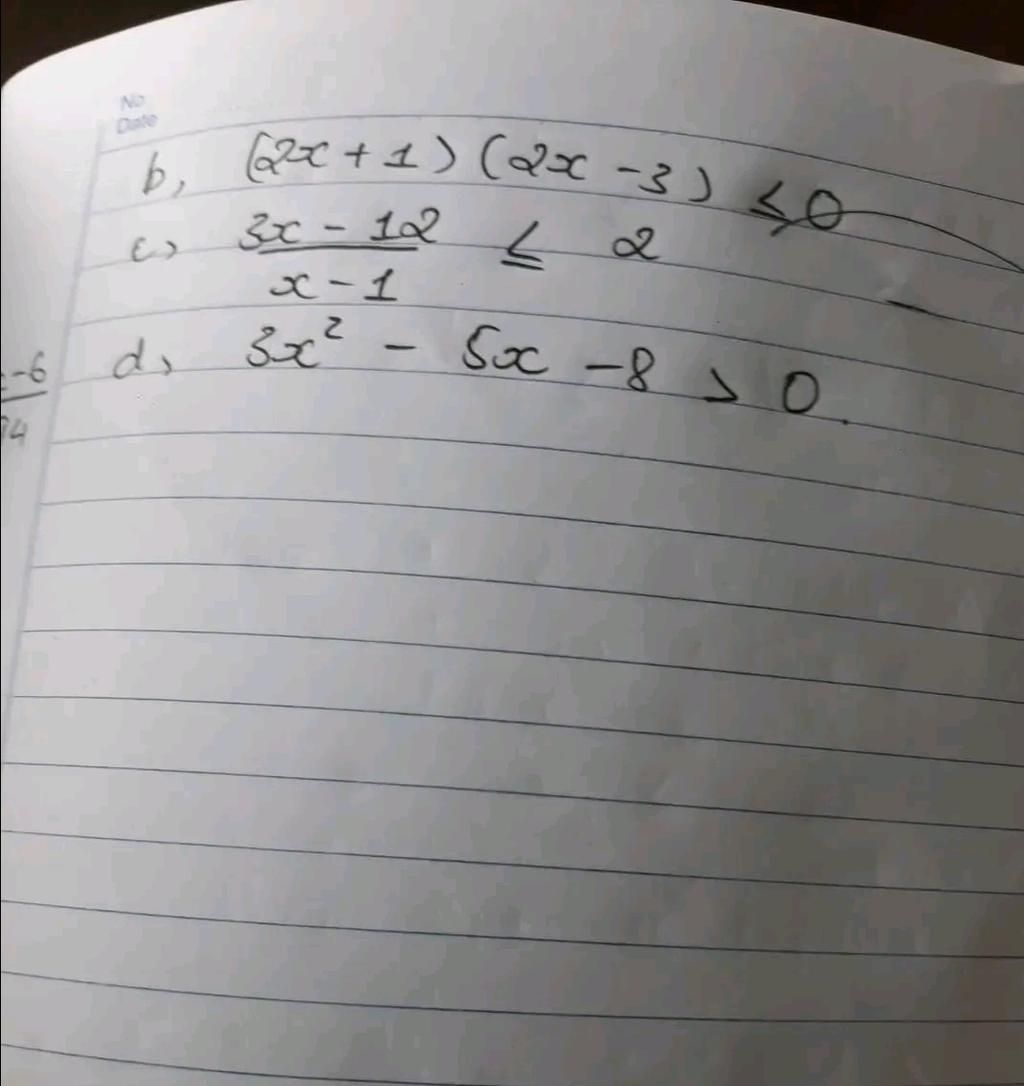 No
Date
b, (2x + 1) (2x - 3) ≤ 0
c, 3x - 12 ≤ 2
x - 1
d, 3x² - 5x - 8 > 0.
-6
14